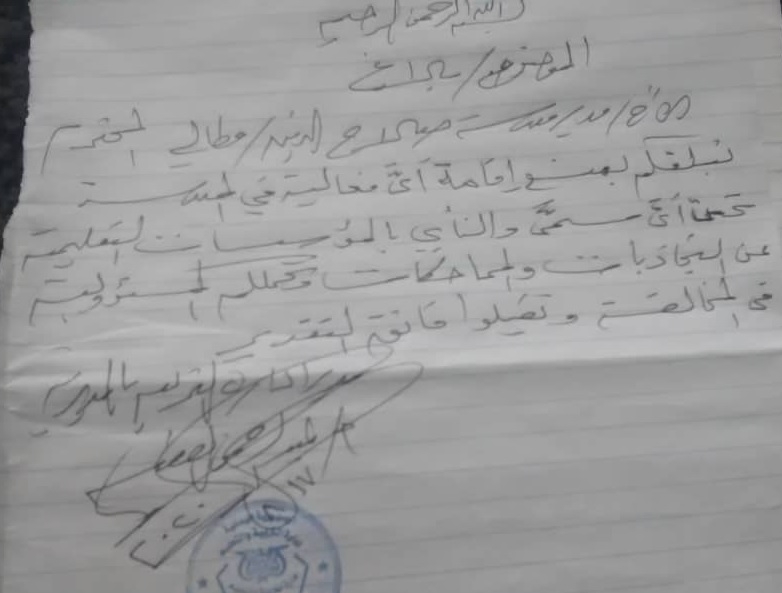 بسم الله الرحمن الرحيم
الموضوع/ بلاغ
الأخ/ مدير مدرسة صلاح الدين/ مطالي المحترم
نبلغكم بمنع إقامة أيَّ فعالية في المدرسة
تحت أيَّ مسمَّى والنأي بالمؤسسات التعليمية
عن التجاذبات والمماحكات وتحملكم المسؤولية
في المخالفة وتقبلوا فائق التقدير
مدير إدارة التربية بالمديرية